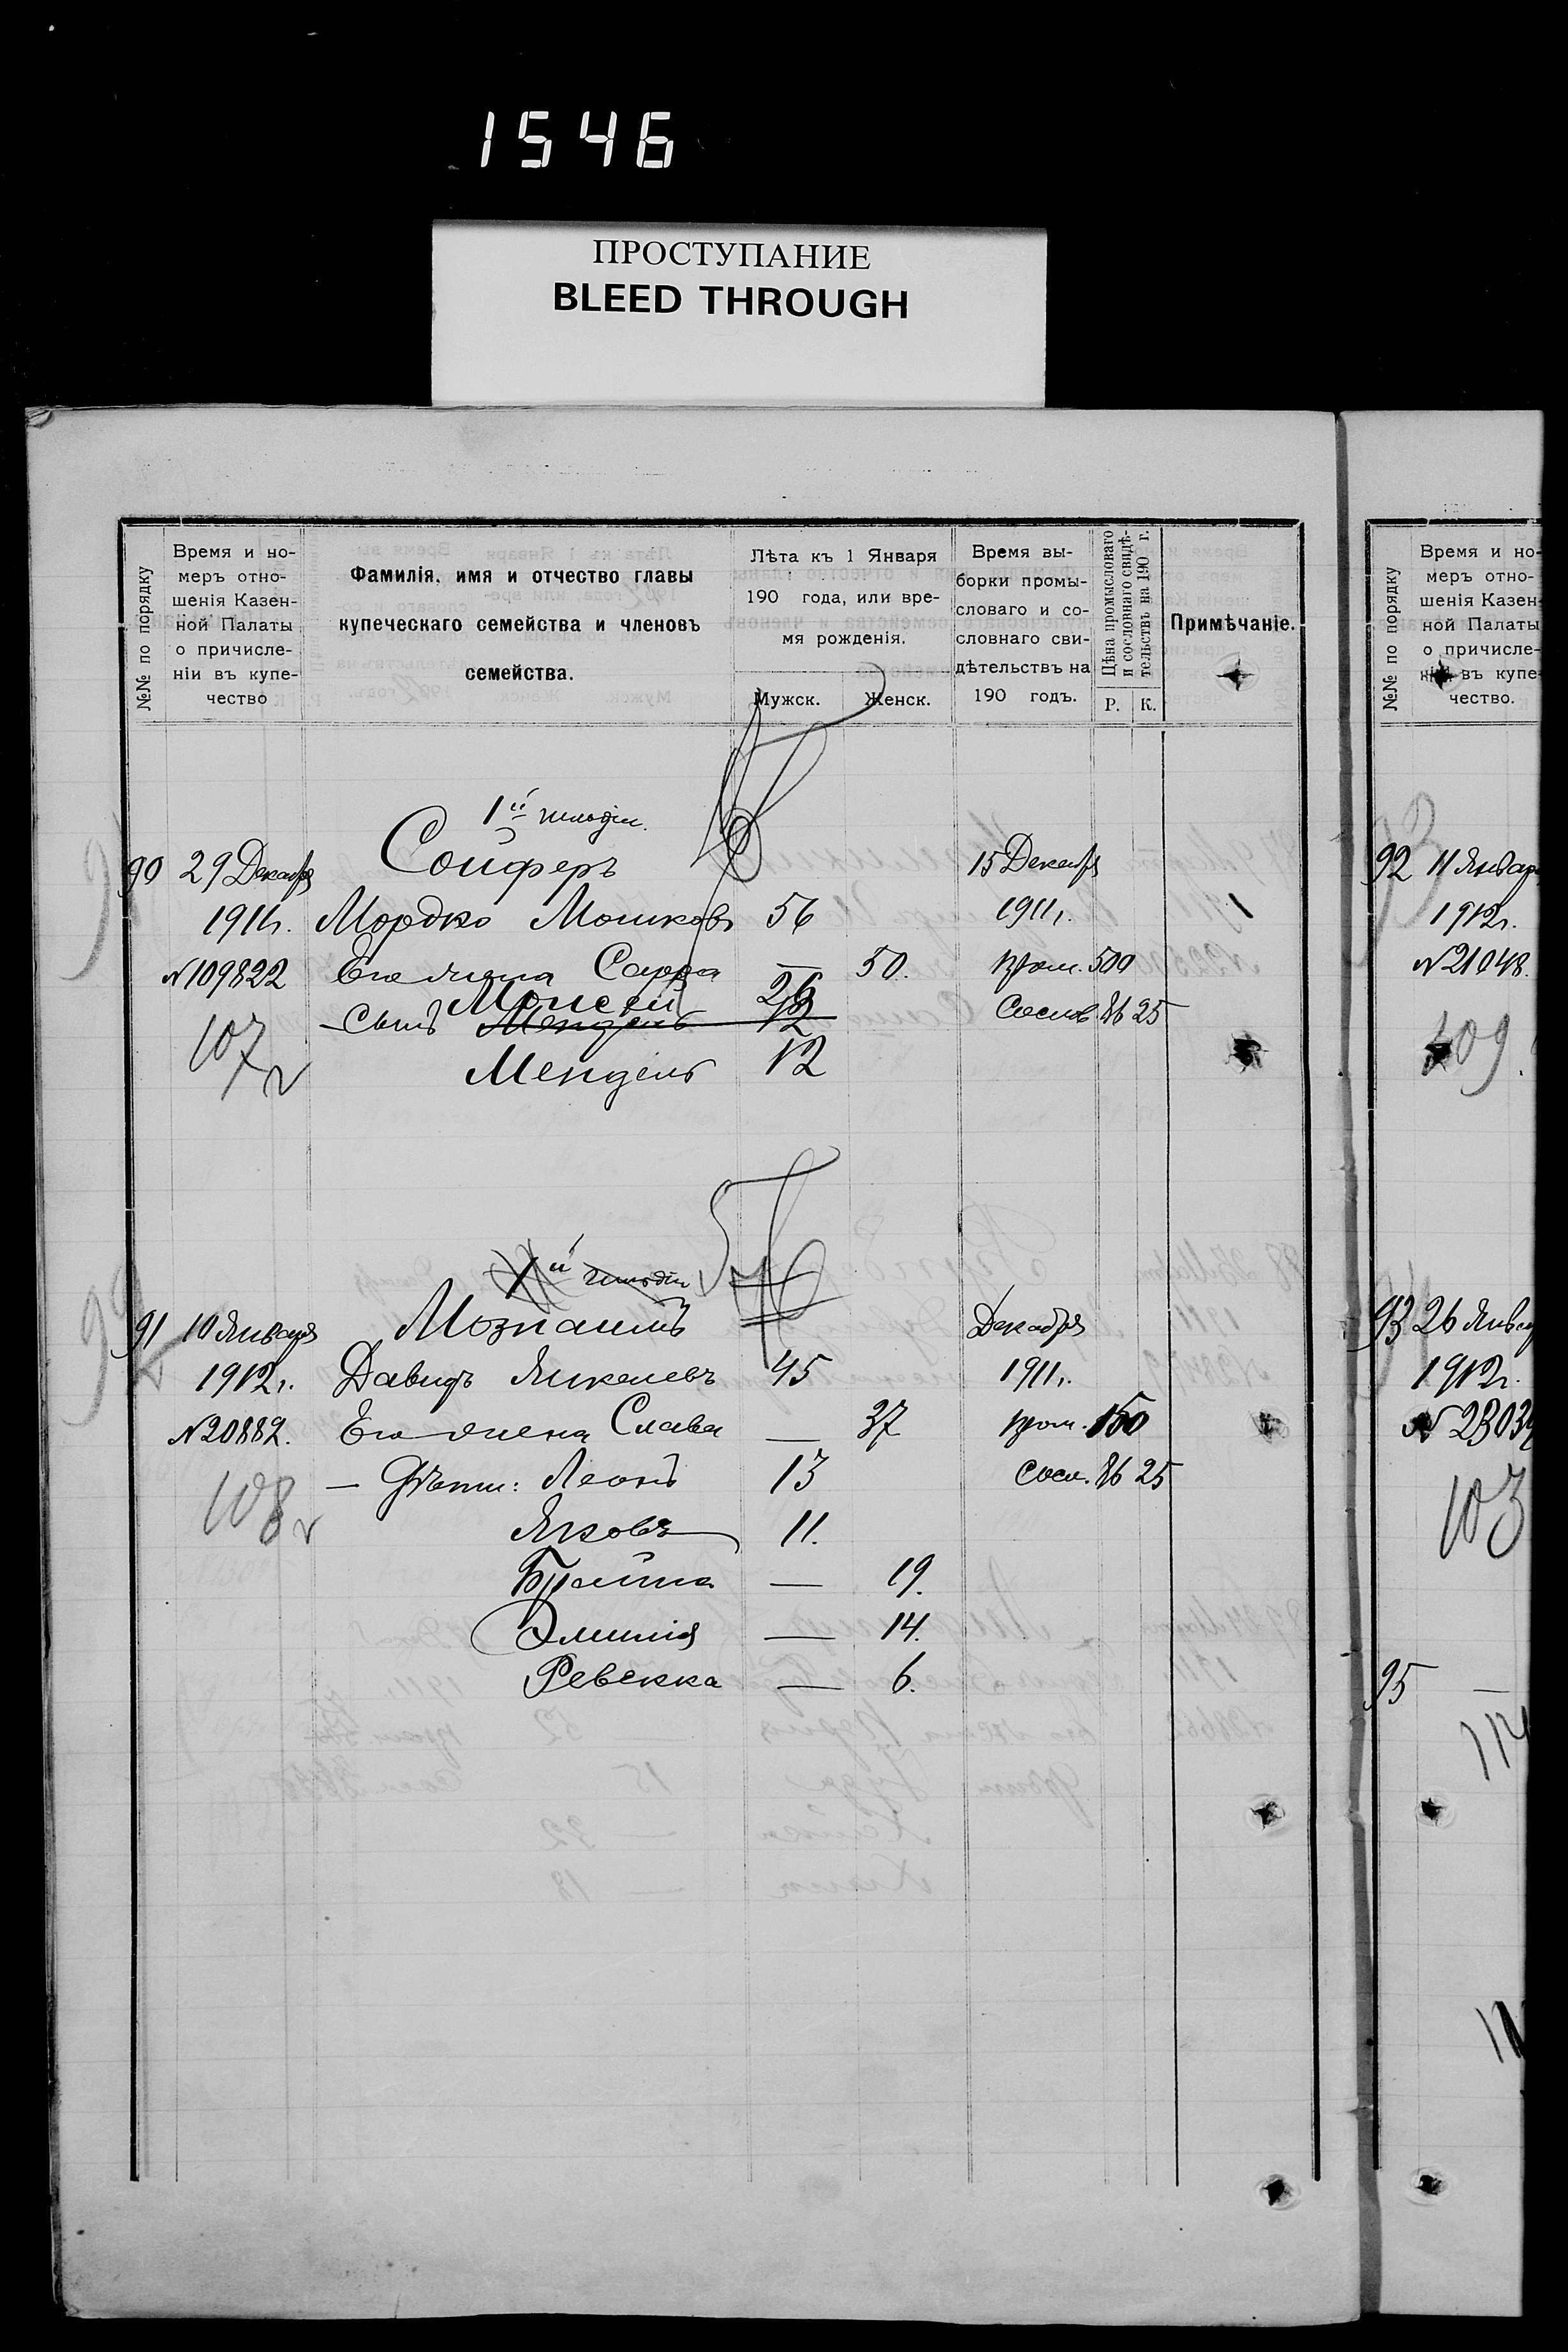 1546
ПРОСТУПАНИЕ
BLEED THROUGH
№№ по порядку
Время и но-
меръ отно-
шенія Казен-
ной Палаты
о причисле-
ніи въ купе-
чество
Фамилія, имя и отчество главы
купеческаго семейства и членовъ
семейства.
Лѣта къ 1 Января
190 года, или вре-
мя рожденія.
Мужск. Женск.
Время вы-
борки промы-
словаго и со-
словнаго сви-
дѣтельствъ на
190 годъ.
Цѣна промысловаго
и сословнаго свидѣ-
тельствъ на 190 г.
Р. К.
Примѣчаніе.
1й гильдіи.
90 29 Декабря Сойферъ 15 Декабря
1911г. Мордко Мошковъ 56 1911г.
№109822 Его жена Сарра — 50. пром. 500
Моисей 26
— Сынъ Мендель 12 Сослов. 86 25
107 Мендель 12
1й гильдіи
91 10 Января Мознаимъ Декабря
1912г. Давидъ Янкелевъ 45 1911г.
№20882. Его жена Слава — 37 пром. 150
— Дѣти: Леонъ 13 Сосл. 86 25
108 Яковъ 11.
— 19.
Эмилія — 14.
Ревекка — 6.
№№ по порядку
Время и но-
меръ отно-
шенія Казен-
ной Палаты
о причисле-
ніи въ купе-
чество.
92 11 Январ
1912г.
№21048.
109.
93 26 Январ
1912г.
№ 2303
103
95 —